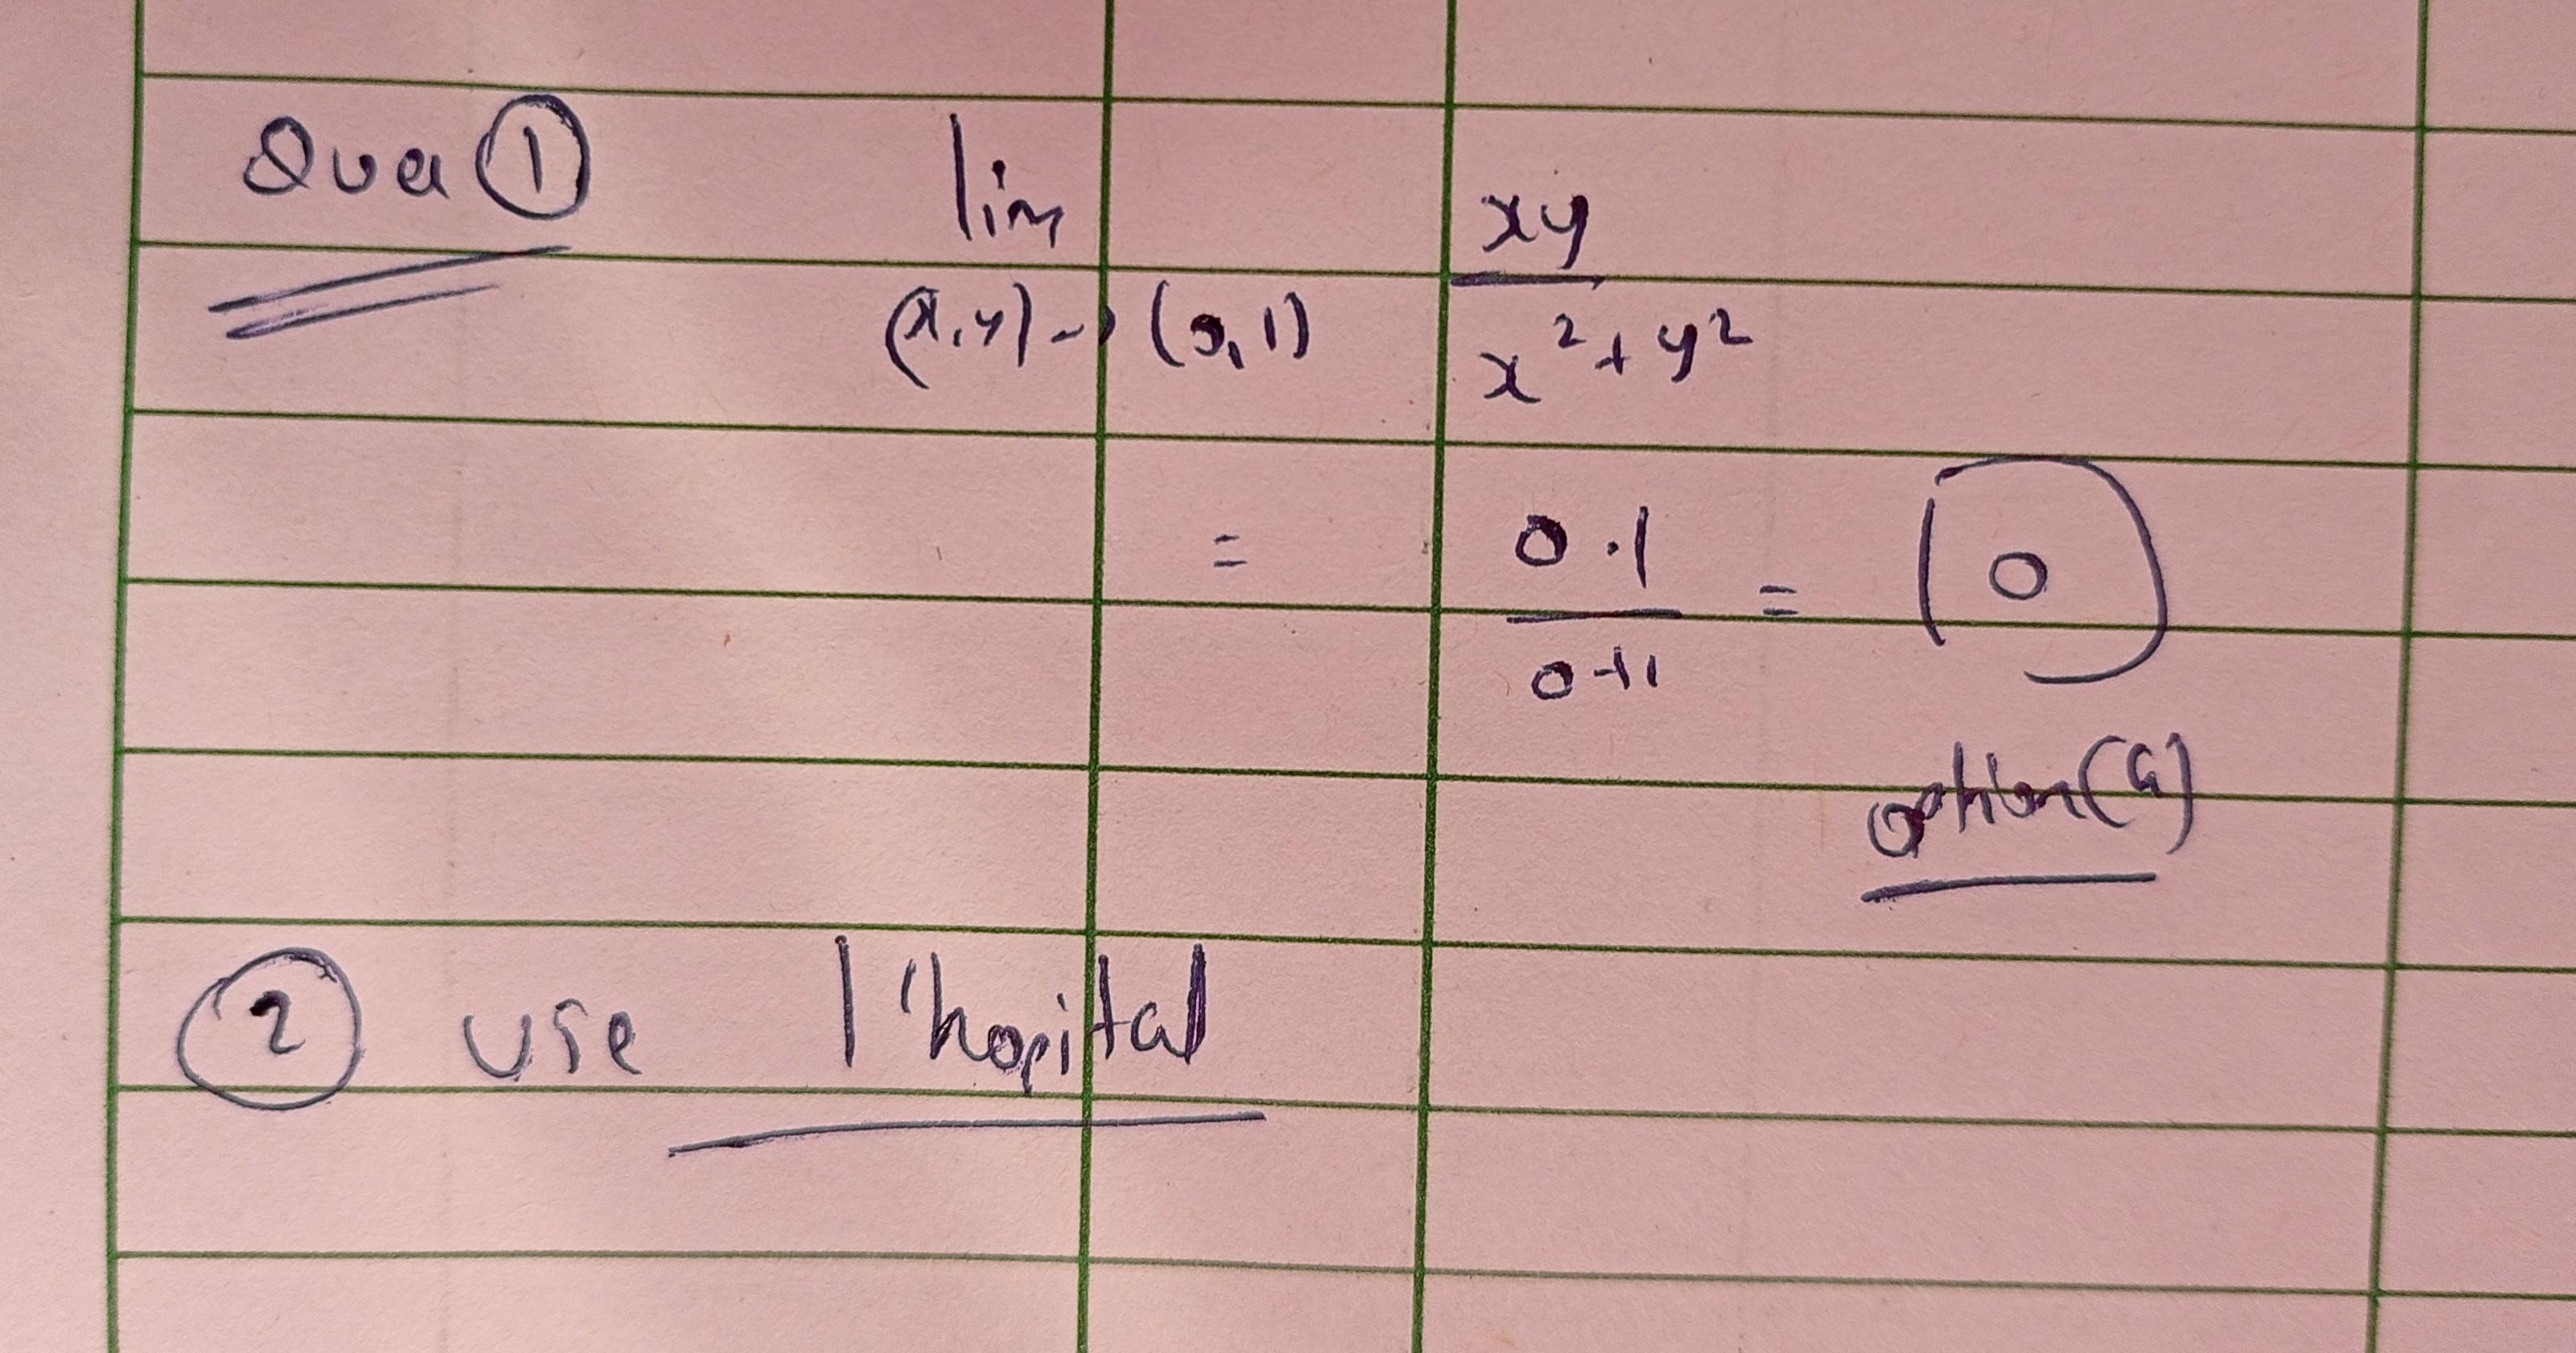 Que ① lim xy
(x,y) → (0,1) x² + y²
= 0.1 = 0
0+1
option (a)
② use l'hopital